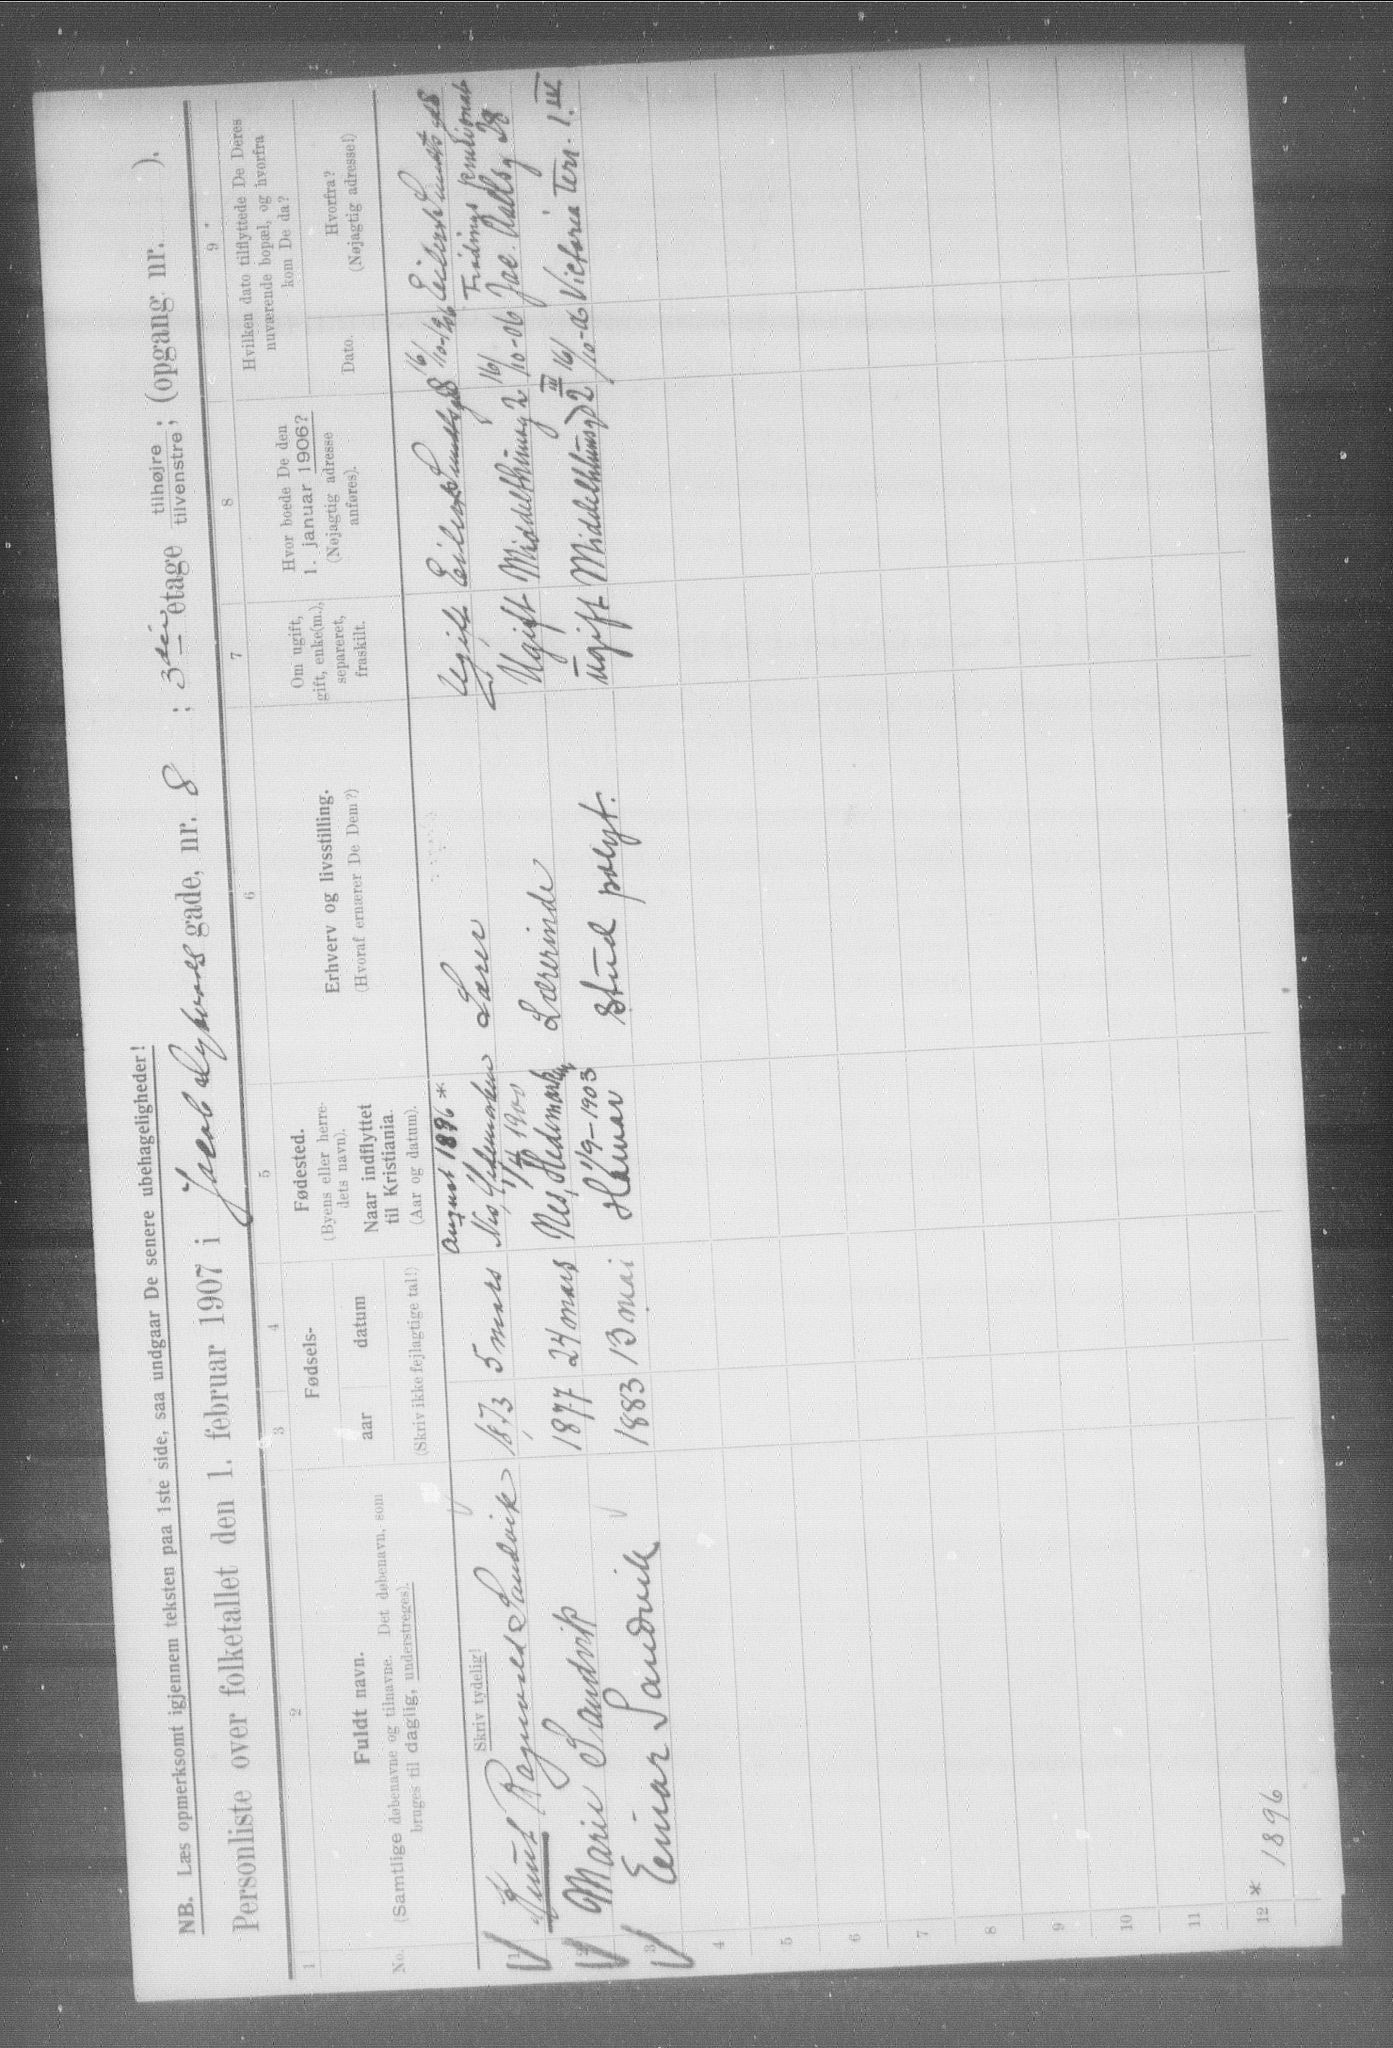 NB. Læs opmerksomt igjennem teksten paa 1ste side, saa undgaar De senere ubehageligheder!
Personliste over folketallet den 1. februar 1907 i Jacob Dybwads gade, nr. 8 ; 3die etage tilhøjre ; tilvenstre ; (opgang nr. ).
1 2 3 4 5 6 7 8 9
No.
Fuldt navn.
(Samtlige døbenavne og tilnavne. Det døbenavn, som
bruges til daglig, understreges).
Skriv tydelig!
Fødsels-
aar datum
(Skriv ikke fejlagtige tal!)
Fødested.
(Byens eller herre-
dets navn).
Naar indflyttet
til Kristiania.
(Aar og datum).
Erhverv og livsstilling.
(Hvoraf ernærer De Dem?)
Om ugift,
gift, enke(m.),
separeret,
fraskilt.
Hvor boede De den
1. januar 1906?
(Nøjagtig adresse
anføres).
Hvilken dato tilflyttede De Deres
nuværende bopæl, og hvorfra
kom De da?
Dato.
Hvorfra?
(Nøjagtig adresse!)
august 1896 *
1 Knut Ragnvald Sandvik 1873 5 mars Nes, Hedemarken Ugift Eilert Sundts gd 8 16/10-06 Eilert Sundts gd 8
1/4 1900
2 Marie Sandvik 1877 24 mars Nes, Hedemarken Lærerinde Ugift Middelthunsg 2 16/10-06 Jac. Aalls g 28
1/9-1903
3 Einar Sandvik 1883 13 mai Hamar stud polyt. ugift Middelthunsgd 2 III 16/10-06 Victoria Terr. 1. IV
4
5
6
7
8
9
10
11
12
* 1896